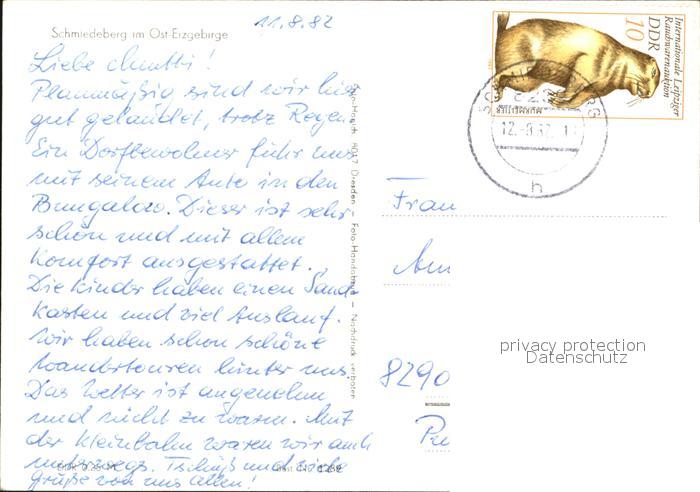 11.8.82
Schmiedeberg im Ost-Erzgebirge
Liebe Mutti!
Planmäßig sind wir hier
gut gelandet, trotz Regen.
Ein Dorfbewohner fuhr uns
mit seinem Auto in den
Bungalow. Dieser ist sehr
schön und mit allem
Komfort ausgestattet.
Die Kinder haben einen Sand-
kasten und viel Auslauf.
Wir haben schon schöne
Wandertouren hinter uns.
Das Wetter ist angenehm
und nicht zu warm. Mit
der Kleinbahn waren wir auch
unterwegs. Tschüß und viele
Grüße von uns allen!
8017 Dresden – Foto-Handabzug – Nachdruck verboten
Internationale Leipziger
Rauchwarenauktion
DDR
10
MURMELTIER
12.-8.82
h
Frau
Am
8290
privacy protection
Datenschutz